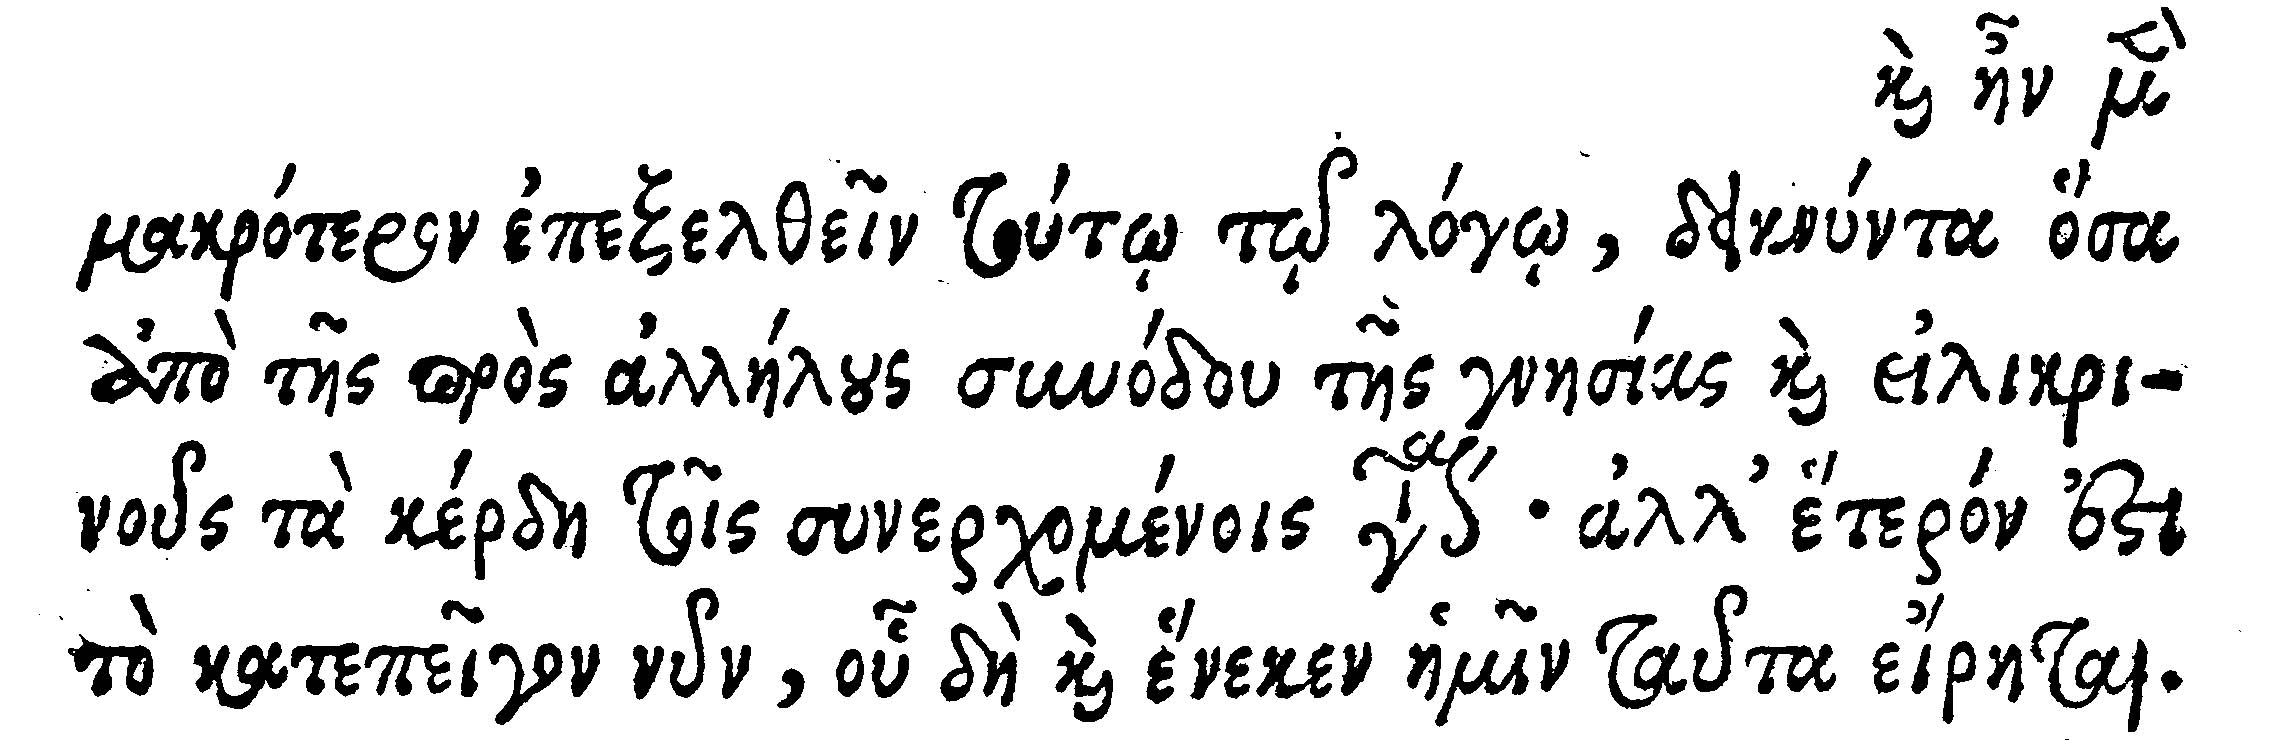 καὶ ἦν μὲν
μακρότερον ἐπεξελθεῖν τούτῳ τῷ λόγῳ, δεικνύντα ὅσα
ἀπὸ τῆς πρὸς ἀλλήλους συνόδου τῆς γνησίας καὶ εἰλικρι-
νοῦς τὰ κέρδη τοῖς συνερχομένοις · ἀλλ' ἕτερόν ἐστι
τὸ κατεπεῖγον νῦν, οὗ δὴ καὶ ἕνεκεν ἡμῖν ταῦτα εἴρηται.